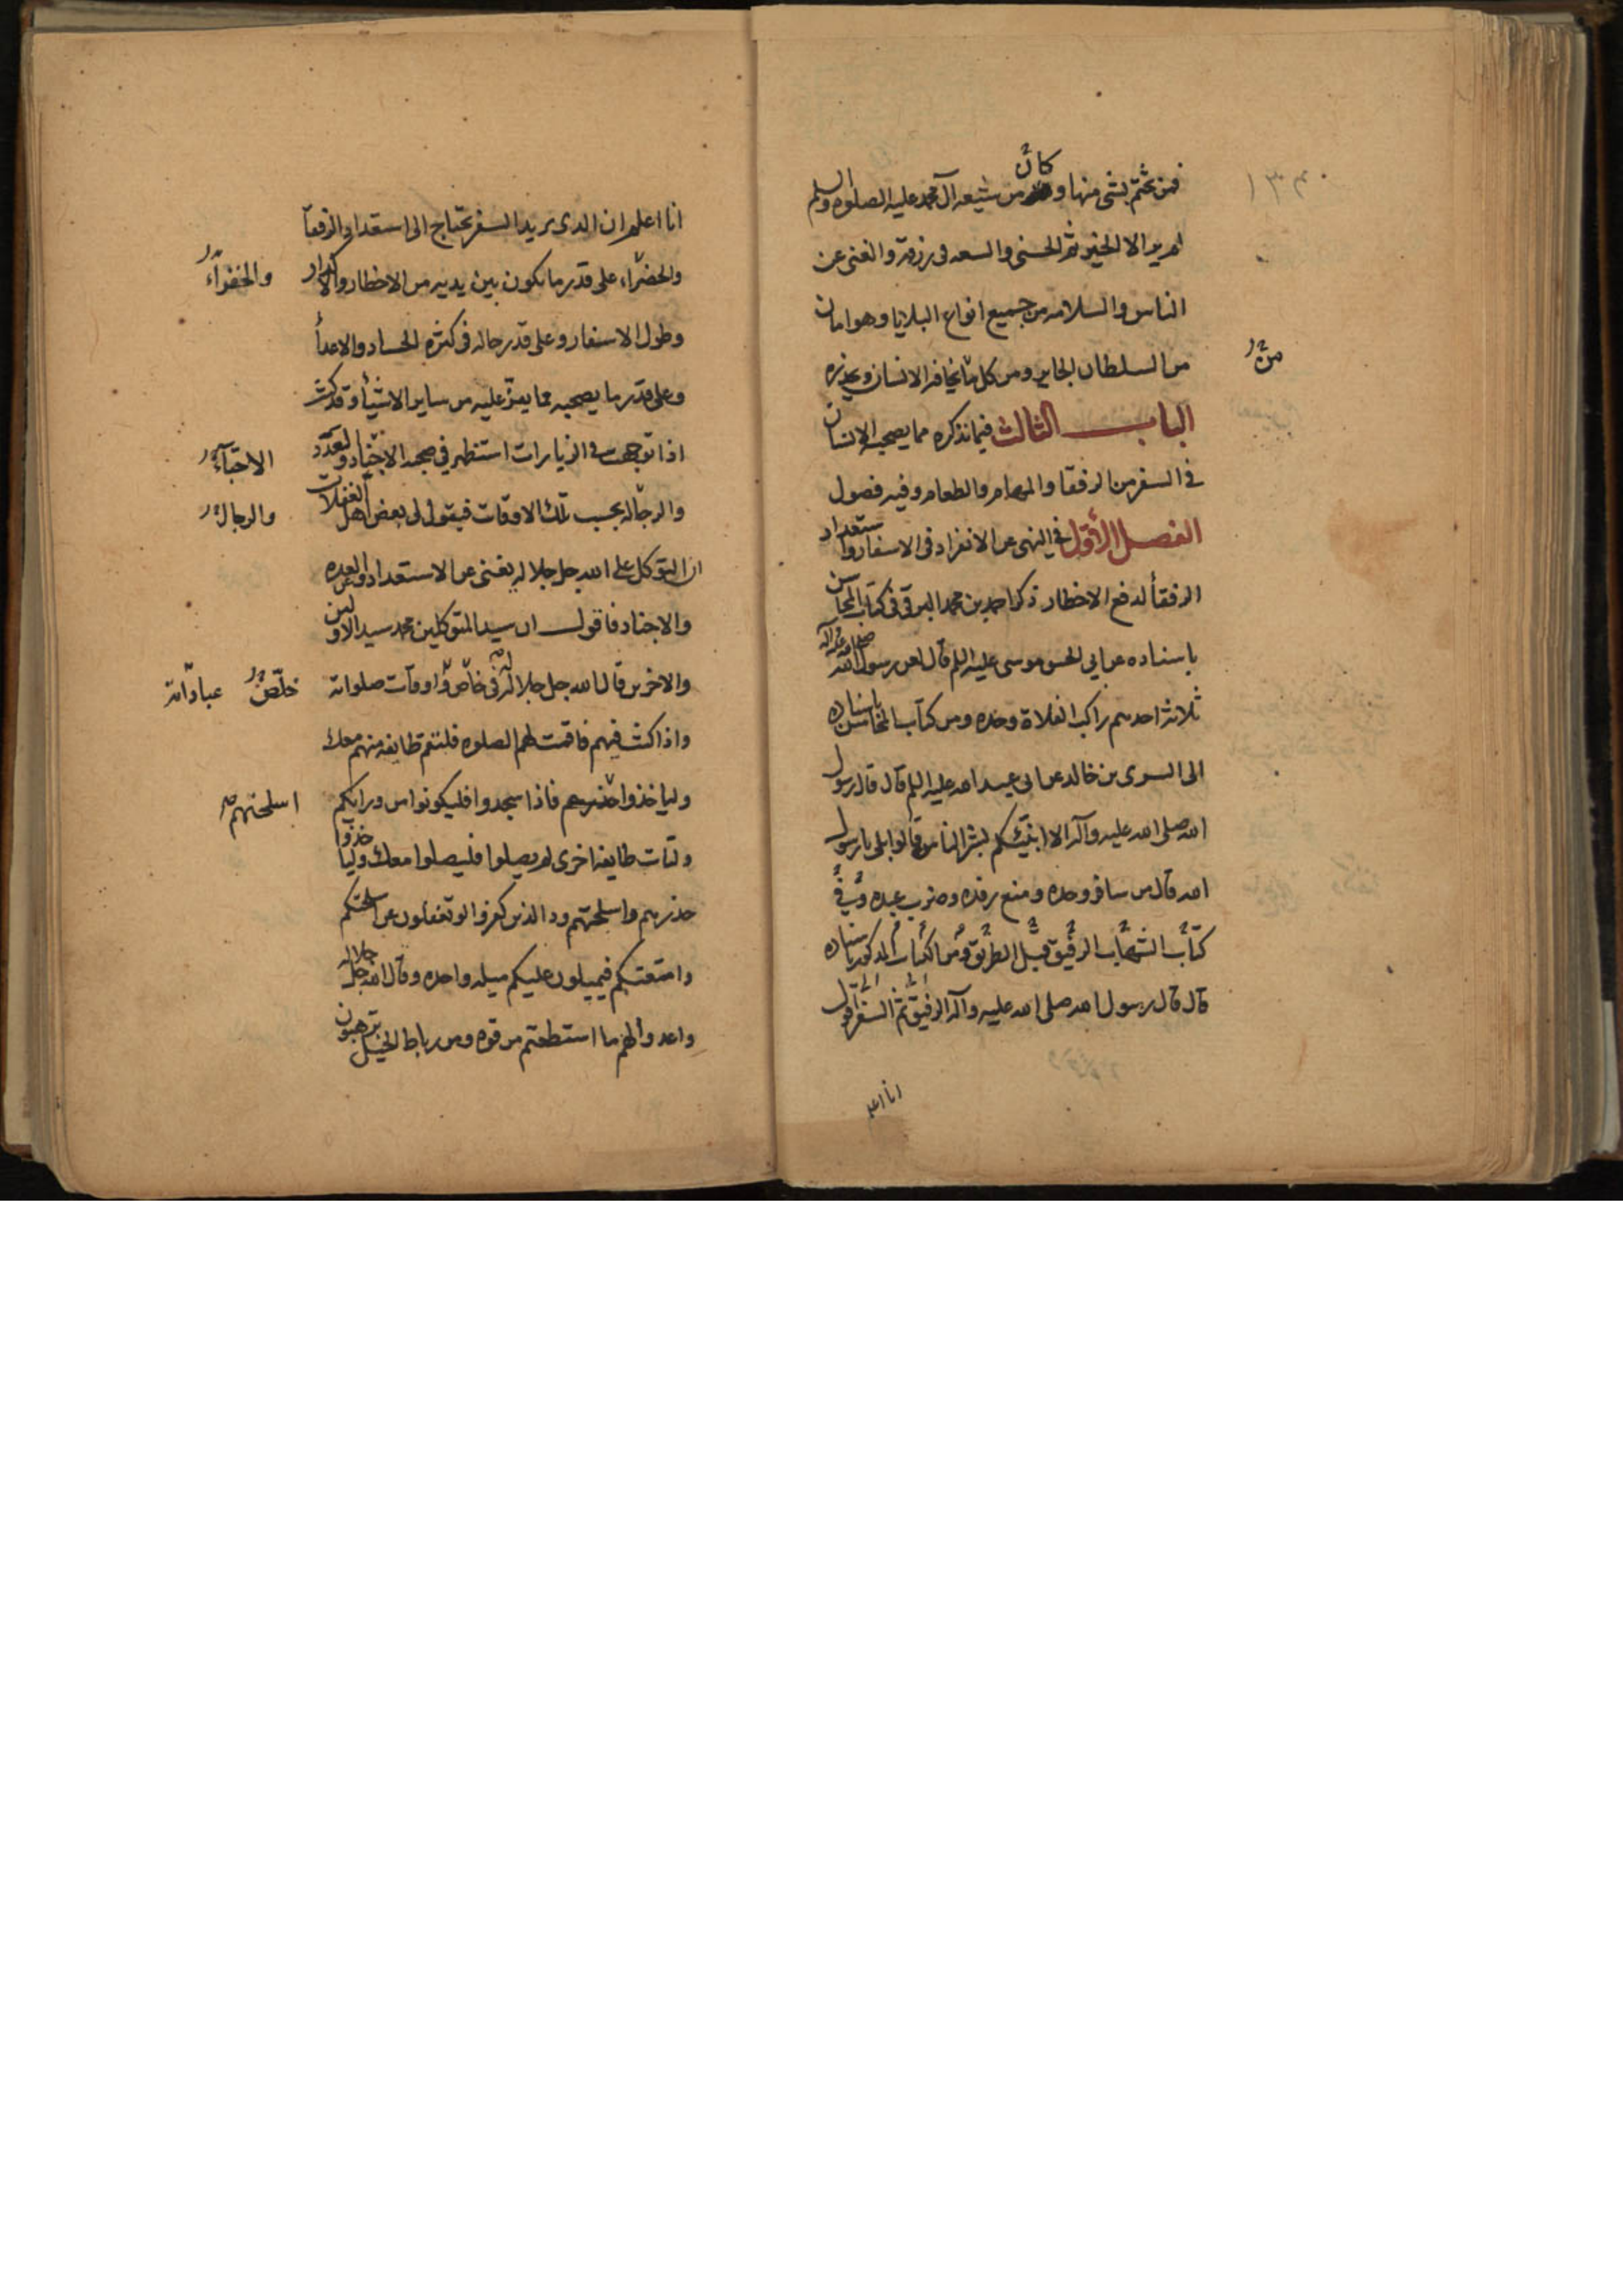 فمن تختم بشئ منها وكان من شيعه آل محمد عليه الصلوه والسلم
لم ير الا الخير ثم الحسنى والسعه فى رزقه والغنى عن
الناس والسلامه من جميع انواع البلايا وهو امان
من السلطان الجاير ومن كل ما يخافه الانسان ويحذره
من
الباب الثالث فيما نذكره مما يصحبه الانسان
فى السفر من الرفقا والمهام والطعام وفيه فصول
الفصل الأول فى النهى عن الانفراد فى الاسفار واستعداد
الرفقأ لدفع الاخطار ذكر احمد بن محمد البرقى فى كتاب المحاسن
باسناده عن ابى الحسن موسى عليه السلم قال لعن رسول الله صلى الله عليه وآله
ثلاثه احدهم راكب الفلاة وحده ومن كتاب المحاسن باسناده
الى السرى بن خالد عن ابى عبد الله عليه السلم قال قال رسول
الله صلى الله عليه وآله الا انبئكم بشر الناس قالوا بلى يا رسول
الله قال من سافر وحده ومنع رفده وضرب عبده وفى
كتاب الشهاب الرفيق قبل الطريق ومن الكتاب المذكور باسناده
قال قال رسول الله صلى الله عليه وآله الرفيق ثم السفر اقول
انا اعلم
انا اعلم ان الذى يريد السفر يحتاج الى استعداد الرفقآ
والحضرآء على قدر ما يكون بين يديه من الاخطار والاكدار
والخفرآء
وطول الاسفار وعلى قدر حاله فى كثره الحساد والاعدأ
وعلى قدر ما يصحبه مما يعز عليه من ساير الاشيأ وقد كنت
اذا توجهت فى الزيارات استظهر فى صحبه الاجناد والعدد
الاجنآد
والرجاله بحسب تلك الاوقات فيقول لى بعض اهل الغفلات
والرجال
ان التوكل على الله جل جلاله يغنى عن الاستعداد والعده
والاجناد فاقول ان سيد المتوكلين محمد سيد الاولين
والاخرين قال الله جل جلاله له فى خاص اوقات صلواته
خلّص عباداته
واذا كنت فيهم فاقمت لهم الصلوه فلتقم طايفه منهم معك
ولياخذوا حذرهم فاذا سجدوا فليكونوا من ورائكم
اسلحتهم
ولتات طايفه اخرى لم يصلوا فليصلوا معك ولياخذوا
حذرهم واسلحتهم ود الذين كفروا لو تغفلون عن اسلحتكم
وامتعتكم فيميلون عليكم ميله واحده وقال الله جل جلاله
واعدوا لهم ما استطعتم من قوه ومن رباط الخيل ترهبون